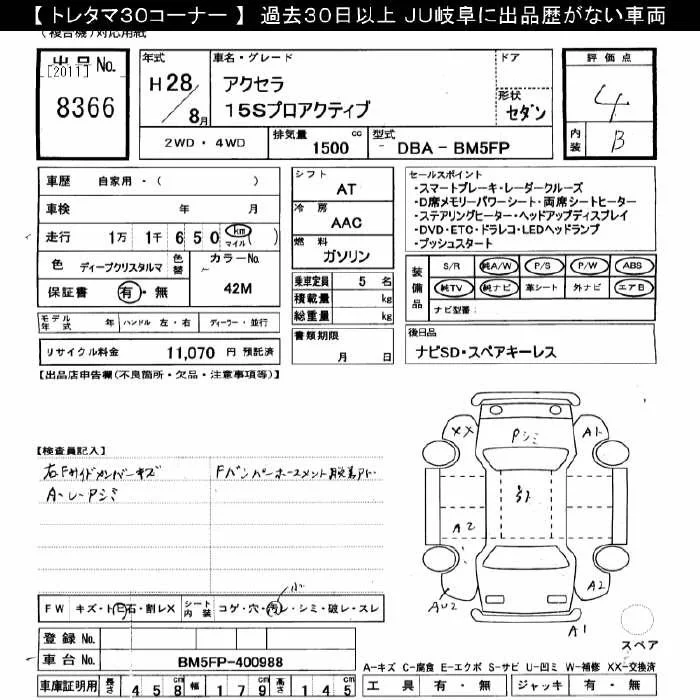 【 トレタマ30コーナー 】 過去30日以上 JU岐阜に出品歴がない車両
(複合機)対応用紙
出品 No.
[2011]
8366
年式
H28/8月
車名・グレード
アクセラ
15Sプロアクティブ
ドア
形状
セダン
評価点
4
内装
B
2WD・4WD
排気量
1500 cc
型式
DBA - BM5FP
車歴 自家用・( )
車検 年 月
走行 1万 1千 650 km マイル ( )
色 ディープクリスタルマ
色替
カラーNo.
42M
保証書 有・無
モデル年式 年 ハンドル 左・右 ディーラー・並行
リサイクル料金 11,070 円 預託済
シフト
AT
冷房
AAC
燃料
ガソリン
乗車定員 5 名
積載量 kg
総重量 kg
書類期限
月 日
セールスポイント
・スマートブレーキ・レーダークルーズ
・D席メモリーパワーシート・両席シートヒーター
・ステアリングヒーター・ヘッドアップディスプレイ
・DVD・ETC・ドラレコ・LEDヘッドランプ
・プッシュスタート
装備品
S/R 純A/W P/S P/W ABS
純TV 純ナビ 革シート 外ナビ エアB
ナビ型番:
後日品
ナビSD・スペアキーレス
【出品店申告欄(不良箇所・欠品・注意事項等)】
【検査員記入】
右Fサイドメンバーキズ
A・レ・Pシミ
XX
Pシミ
A1
A2
AU2
A2
A1
スペア
FW キズ・トビ石・割レX
シート内装
コゲ・穴・汚レ・シミ・破レ・スレ
小
登録 No.
車台 No. BM5FP-400988
車庫証明用 長さ 458cm 幅 179cm 高さ 145cm
A-キズ C-腐食 E-エクボ S-サビ U-凹ミ W-補修 XX-交換済
工具 有・無 ジャッキ 有・無